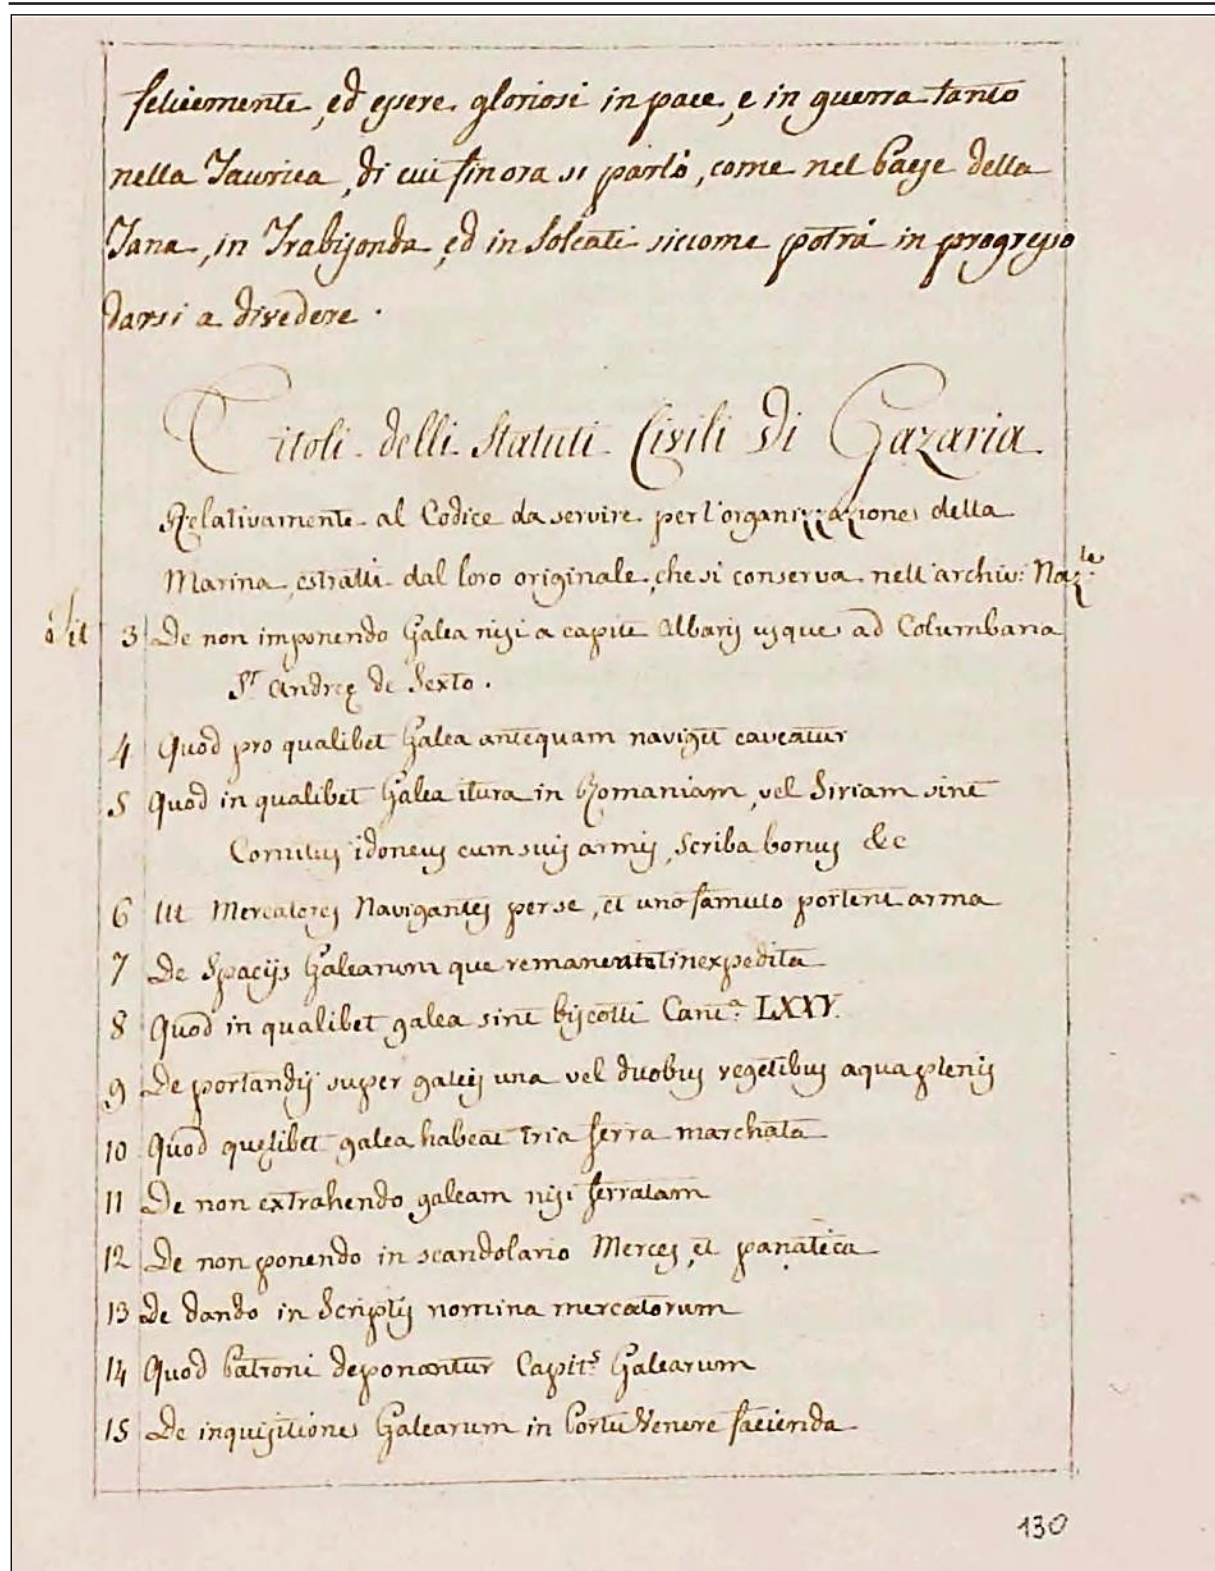 felicemente, ed essere gloriosi in pace, e in guerra tanto
nella Taurica, di cui finora si parlò, come nel Paese della
Tana, in Trabisonda, ed in Solcati siccome potrà in progresso
darsi a divedere.
Titoli delli Statuti Civili di Gazaria
Relativamente al Codice da servire per l'organizzazione della
Marina, estratti dal loro originale, che si conserva nell'archiv: Naz:le
Tit 3 De non imponendo Galea nisi a capite Albarij usque ad Columbaria
Sti Andreę de Sexto.
4 Quod pro qualibet Galea antequam naviget caveatur
5 Quod in qualibet Galea itura in Romaniam, vel Siriam sint
Comitus idoneus cum suis armis, Scriba bonus &c
6 Ut Mercatores Navigantes per se, et uno famulo portent arma
7 De Spacijs Galearum que remanent inexpedita
8 Quod in qualibet galea sint biscotti Cant.a LXXV.
9 De portandis super galeis una vel duobus vegetibus aqua plenis
10 Quod quęlibet galea habeat tria ferra marchata
11 De non extrahendo galeam nisi ferratam
12 De non ponendo in scandolario Merces, et panatica
13 De dando in Scriptis nomina mercatorum
14 Quod Patroni deponantur Capit.s Galearum
15 De inquisitione Galearum in Portu Venere facienda
130